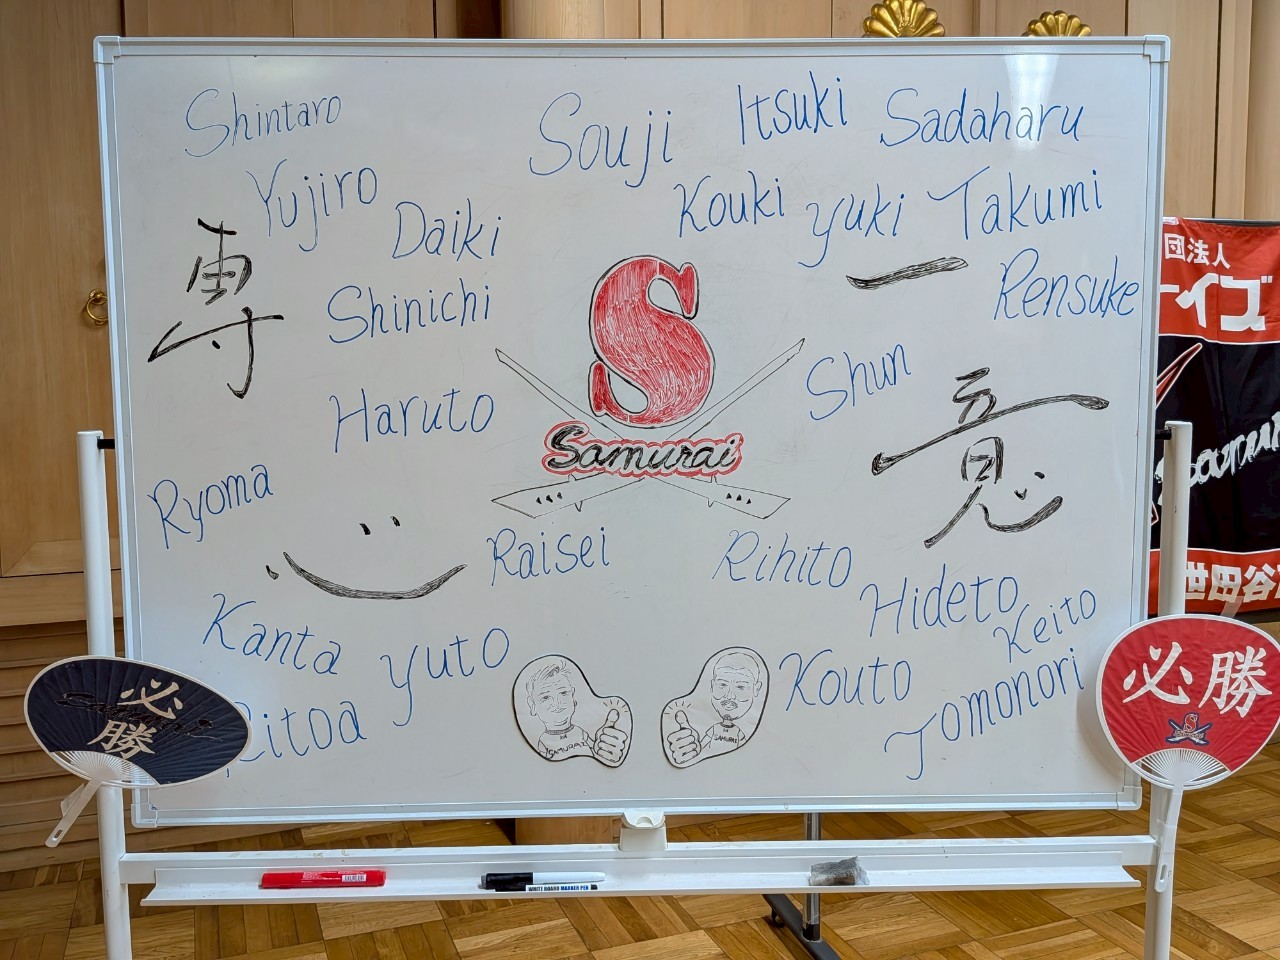 Shintaro
Yujiro
Daiki
Shinichi
Haruto
Ryoma
Kanta
Yuto
Raisei
Souji
Itsuki
Sadaharu
Kouki
yuki
Takumi
Rensuke
Shun
Rihito
Hideto
Keito
Kouto
Tomonori
専心
一意
S
Samurai
SAMURAI
SAMURAI
必勝
必勝
団法人
イズ
Samurai
世田谷
WHITE BOARD MARKER PEN